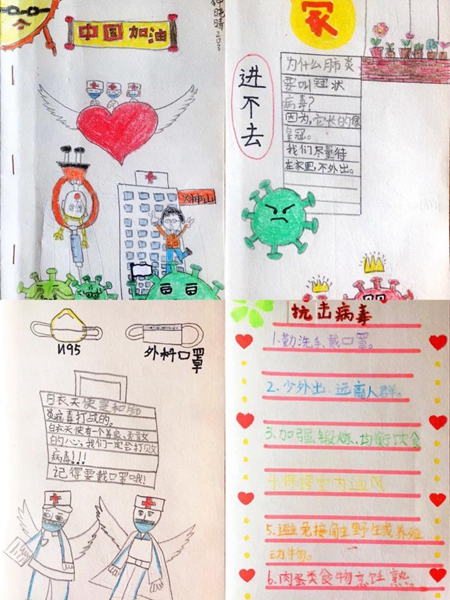 中国加油
火神山
家
进不去
为什么肺炎
要叫冠状
病毒?
因为,它长的像
皇冠。
我们尽量待
在家里,不外出。
N95
外科口罩
白衣天使要和肺
炎病毒打战的,
白衣天使有一个善良、美丽
的心,我们一定会打败
病毒!!!
记得要戴口罩哦!
抗击病毒
1.勤洗手、戴口罩。
2.少外出、远离人群。
3.加强锻炼、均衡饮食
4.保持室内通风
5.避免接触野生或养殖
动物。
6.肉蛋类食物烹饪熟